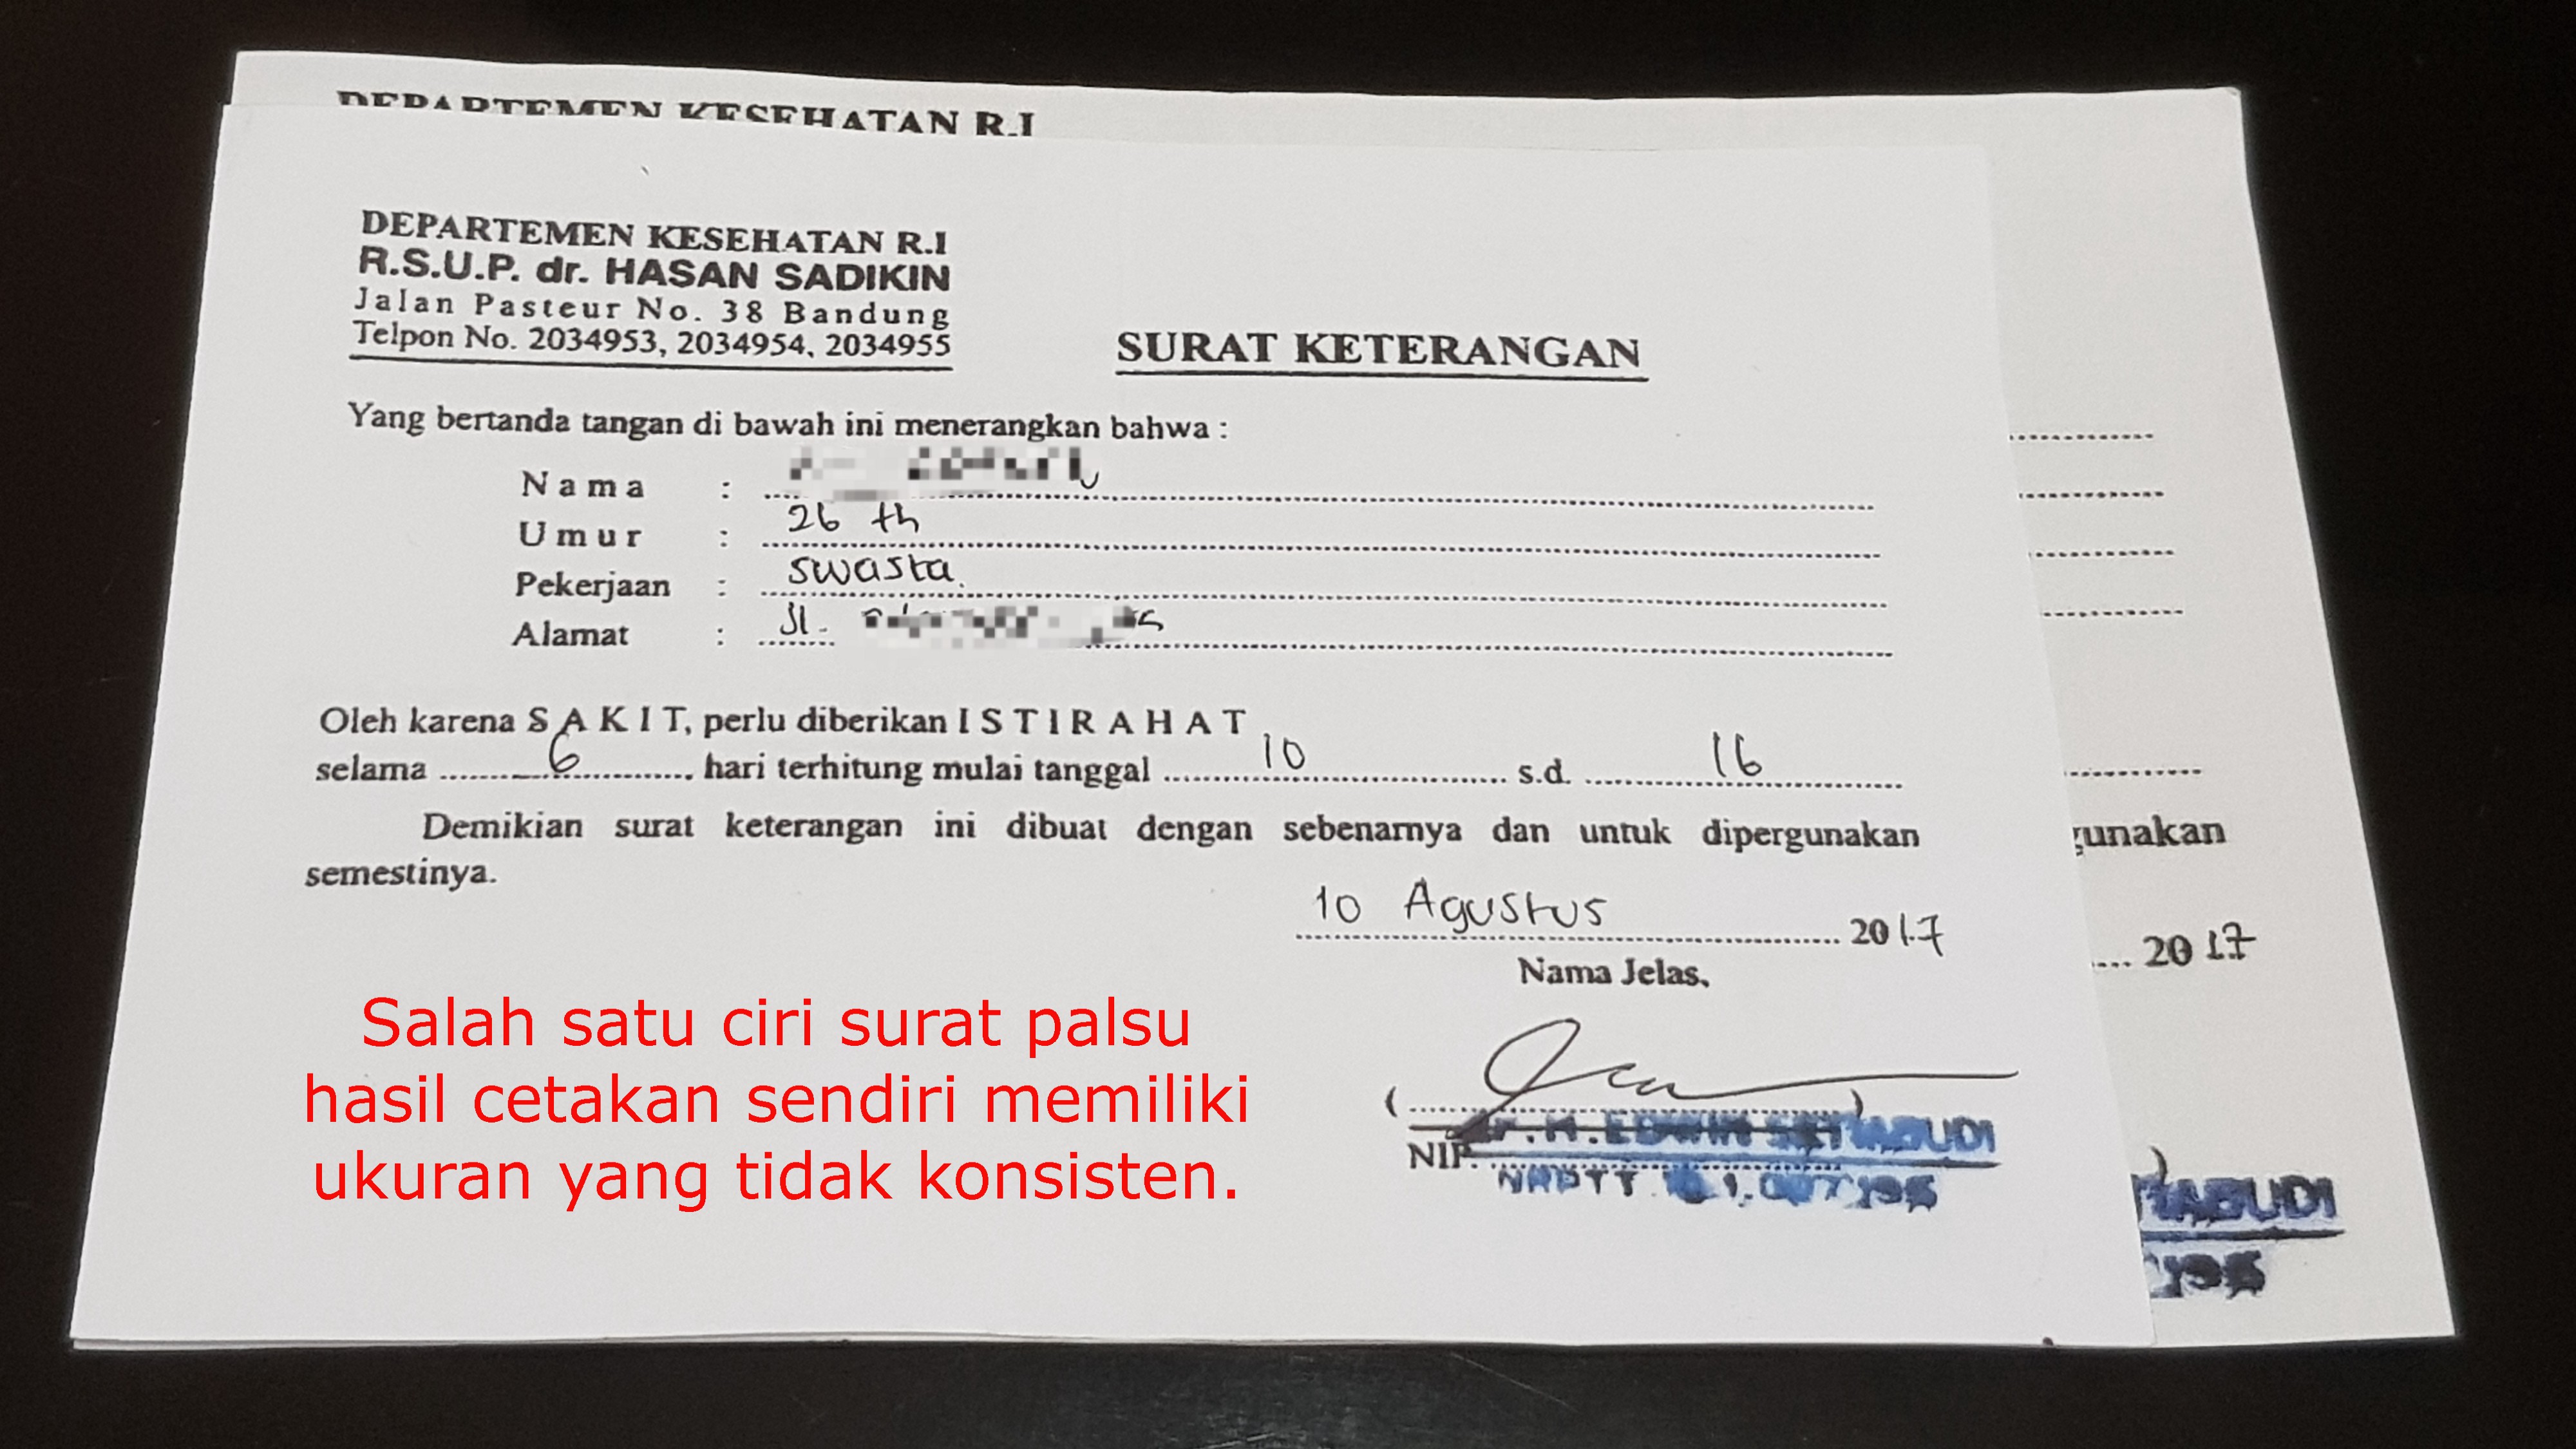 DEPARTEMEN KESEHATAN R.I
DEPARTEMEN KESEHATAN R.I
R.S.U.P. dr. HASAN SADIKIN
Jalan Pasteur No. 38 Bandung
Telpon No. 2034953, 2034954, 2034955
SURAT KETERANGAN
Yang bertanda tangan di bawah ini menerangkan bahwa :
Nama :
Umur : 26 th
Pekerjaan : swasta.
Alamat : Jl.
Oleh karena SAKIT, perlu diberikan ISTIRAHAT
selama 6 hari terhitung mulai tanggal 10 s.d. 16
Demikian surat keterangan ini dibuat dengan sebenarnya dan untuk dipergunakan
semestinya.
gunakan
10 Agustus 2017
2017
Nama Jelas,
Salah satu ciri surat palsu
hasil cetakan sendiri memiliki
ukuran yang tidak konsisten.
( )
EDWIN SETIABUDI
NIP.
NRPTT
ABUDI